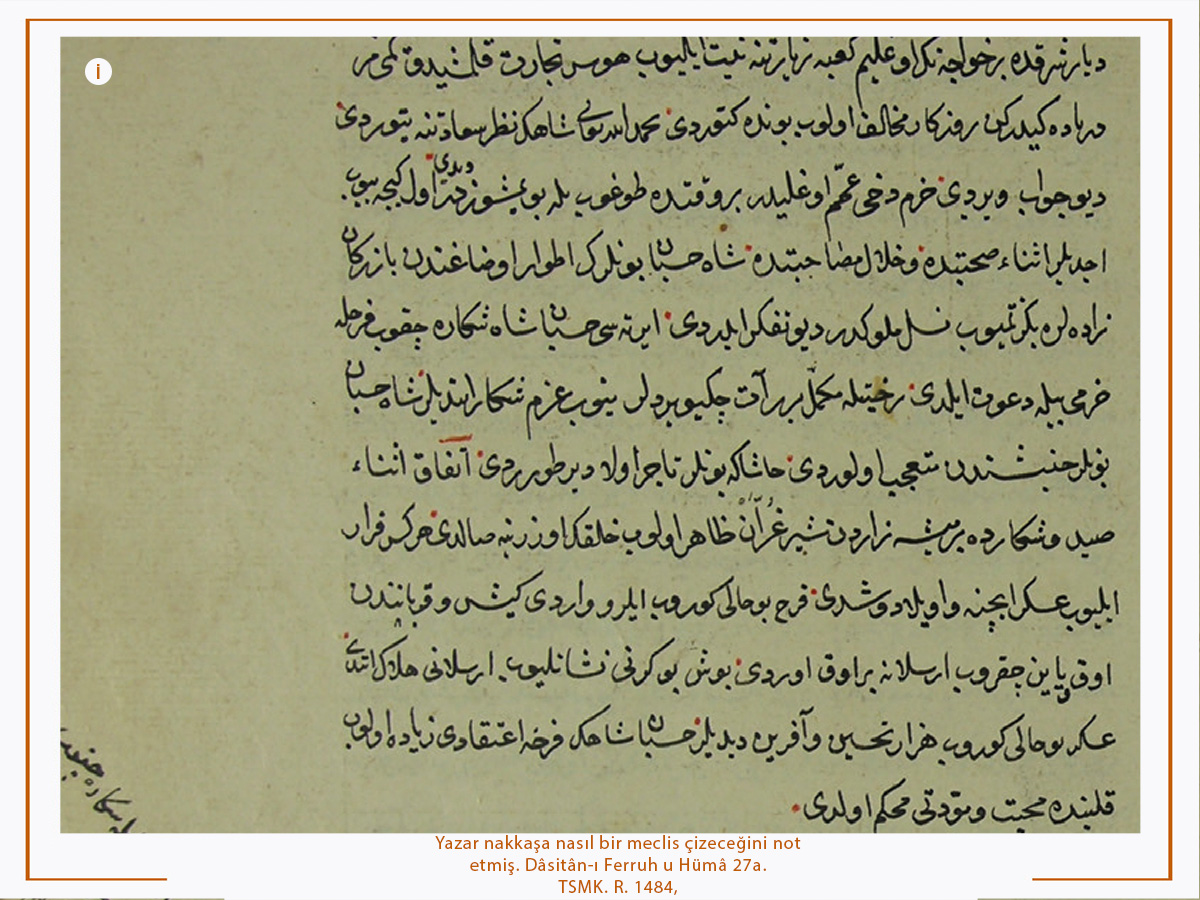 i
ديارشرقده برخواجه نك اوغليم كعبه زيارتنه نيت ايليوب هوس تجارت قلمشيدق كمى مز
درياده كيدركن روزكار مخالف اولوب بونده كتوردى بحمد الله تعالى شاهك نظر سعادتنه يتوردى
ديو جواب ويردى خرم دخى عمم اوغليدر بر وقتده طوغوب بله بويمشوزدر ديدى اول كيجه ييوب
اجديلر اثناء صحبتده وخلال مصاحبتده شاه حسبان بونلرك اطوار اوضاعندن بازركان
زاده لره بكزتميوب نسل ملوكدر ديو تفكر ايلردى ايرته سى حسبان شاه شكاره چقوب فرحله
خرمى بيله دعوت ايلدى رختيله مكمل برر آت چكيويرديلر بنوب عزم شكار اتديلر شاه حسبان
بونلر جنبشندن متعجب اولوردى حاشاكه بونلر تاجر اولا دير طوررردى اتفاق اثناء
صيد وشكارده بر بيشه زاردن شير غران ظاهر اولوب خلقك اوزرينه صالدى هركس فرار
ايليوب عسكر ايچنه واويلا دوشدى فرح بو حالى كوروب ايلرو واردى كيش و قربانندن
اوق ياين چقروب ارسلانه بر اوق اوردى بوش بوكرنى نشانليوب ارسلانى هلاك اتدى
عسكر بو حالى كوروب هزار تحسين وآفرين ديديلر حسبان شاهك فرخه اعتقادى زياده اولوب
قلبنده محبت ومودتى محكم اولدى
Yazar nakkaşa nasıl bir meclis çizeceğini not
etmiş. Dâsitân-ı Ferruh u Hümâ 27a.
TSMK. R. 1484,